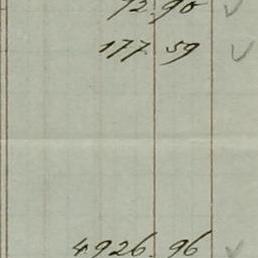 72.90 ✓
177 59 ✓
4926.96 ✓